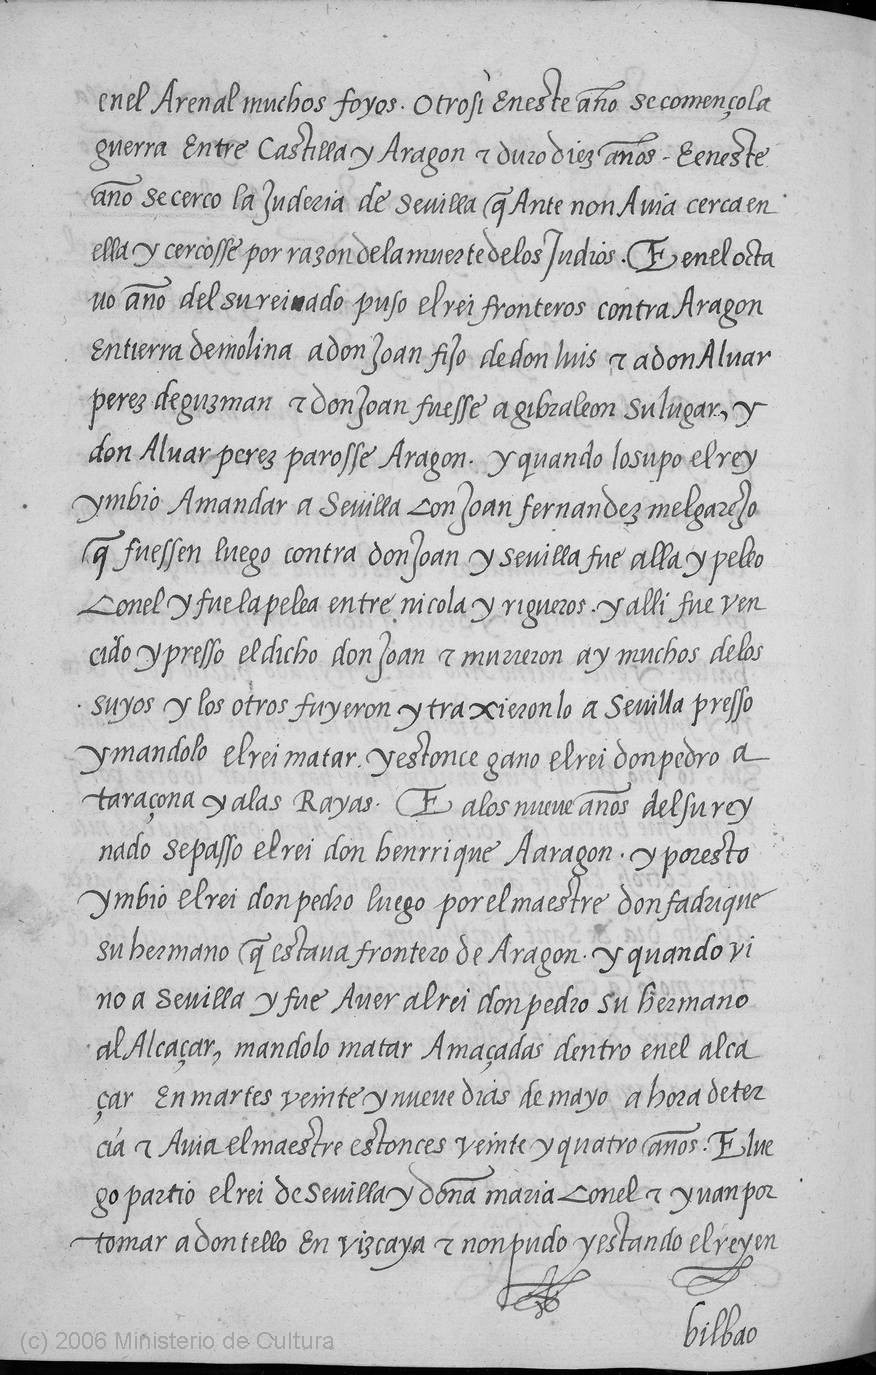 enel Arenal muchos foyos. Otrosi Eneste año se començola
guerra Entre Castilla y Aragon τ duro diez años - E eneste
año se cerco la Juderia de Sevilla q̃ Ante non Auia cerca en
ella y cercosse por razon dela muerte delos Judios. E enel octa
uo año del su reinado puso el rei fronteros contra Aragon
Entierra de molina a don Joan fijo de don luis τ a don Aluar
perez de guzman τ don Joan fuesse a gibraleon su lugar, y
don Aluar perez parosse Aragon. y quando lo supo el rey
ymbio Amandar a Sevilla Con Joan fernandez melgarejo
q̃ fuessen luego contra don Joan y Sevilla fue alla y peleo
Conel y fue la pelea entre nicola y rigueros. y alli fue ven
cido y presso el dicho don Joan τ murieron ay muchos delos
suyos y los otros fuyeron y traxieronlo a Sevilla presso
y mandolo el rei matar. y estonce gano el rei don pedro a
taraçona y alas Rayas. E alos nueve años del su rey
nado se passo el rei don henrrique A aragon. y por esto
ymbio el rei don pedro luego por el maestre don fadrique
su hermano q̃ estaua frontero de Aragon. y quando vi
no a Sevilla y fue Auer al rei don pedro su hermano
al Alcaçar, mandolo matar Amaçadas dentro enel alca
çar En martes veinte y nueve dias de mayo a hora de ter
cia τ Auia el maestre estonces veinte y quatro años. E lue
go partio el rei de Sevilla y doña maria Conel τ yuan por
tomar a don tello En vizcaya τ non pudo y estando el rey en
bilbao
(c) 2006 Ministerio de Cultura